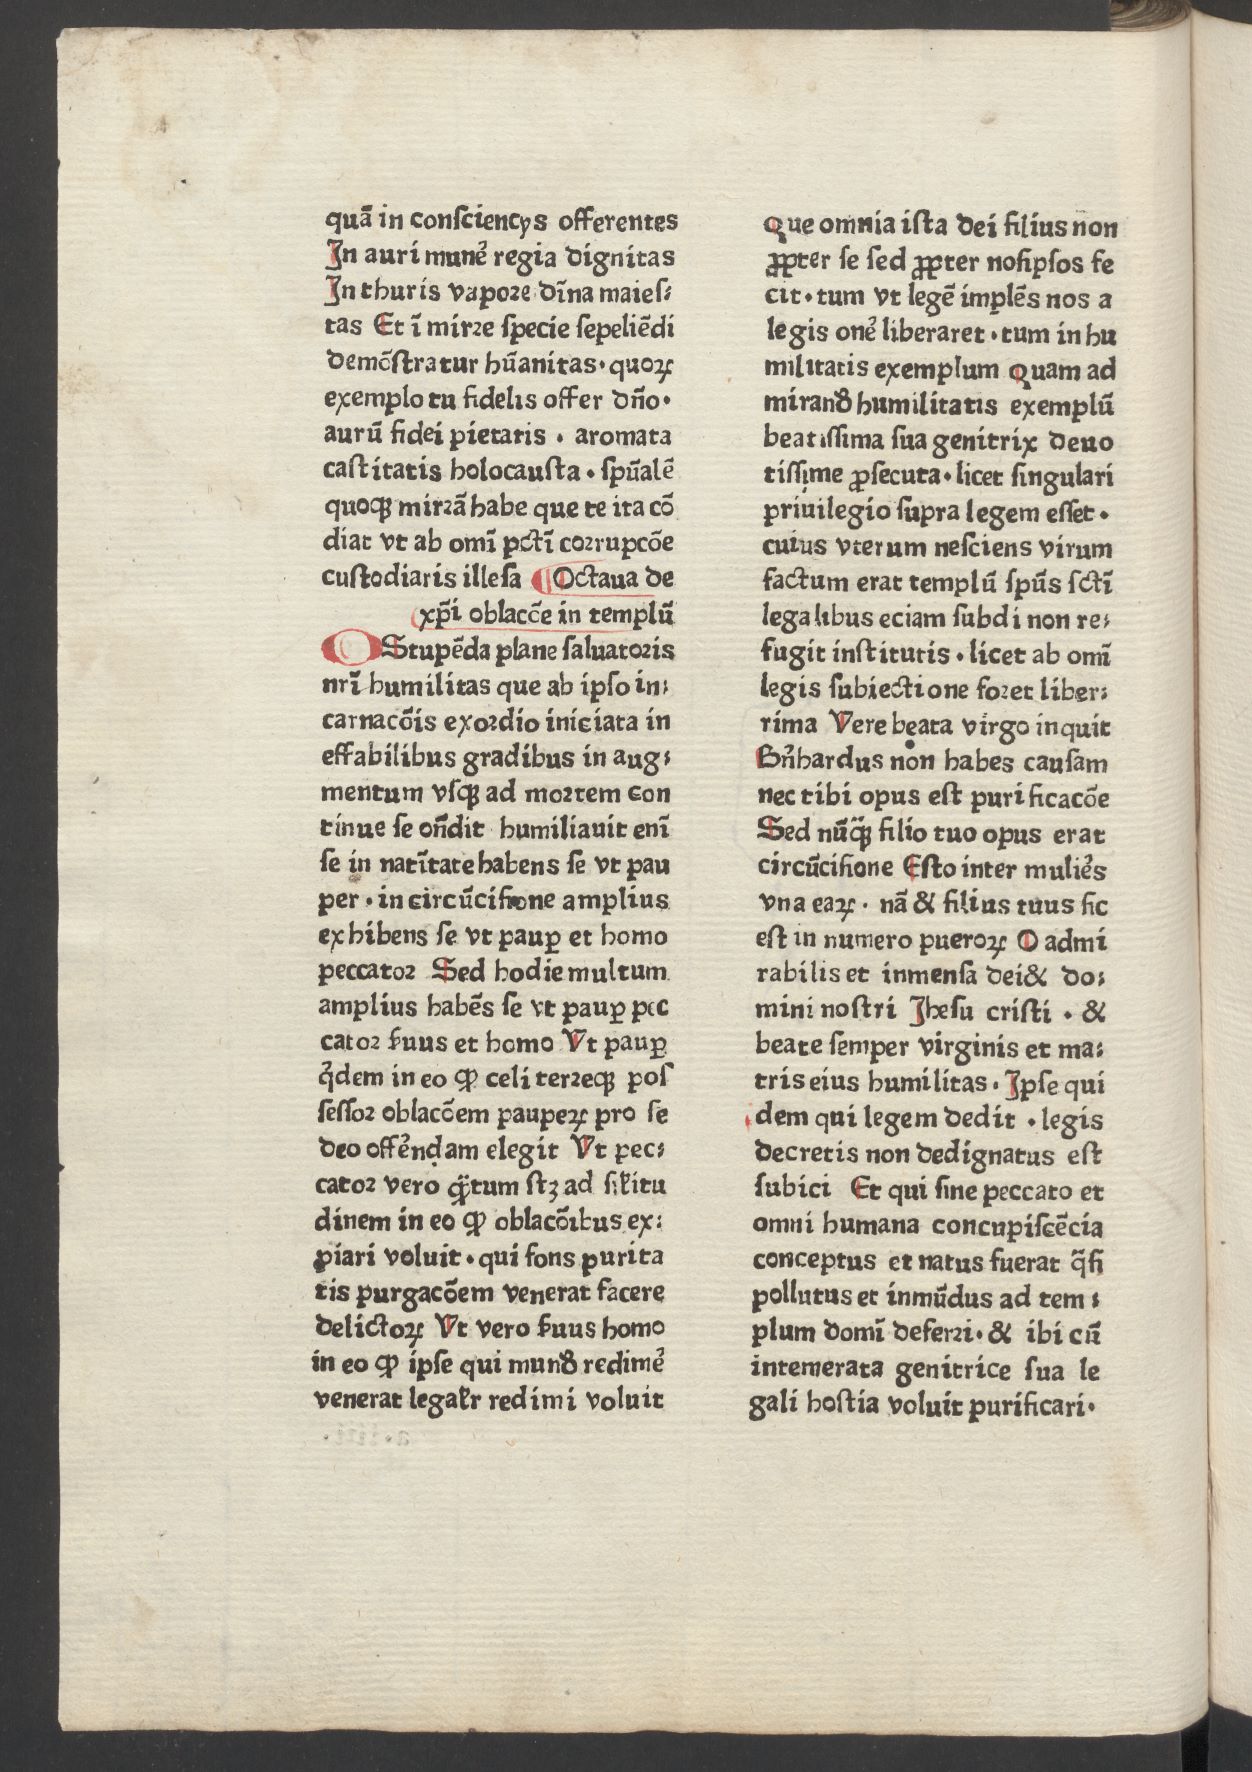 quā in consciencys offerentes
In auri mune᷒ regia dignitas
In thuris vapore dīna maies⸗
tas Et ī mirre specie sepeliēdi
demōstratur hūanitas · quoꝝ
exemplo tu fidelis offer dño ·
aurū fidei pietatis · aromata
castitatis holocausta · spūalē
quoqꝫ mirrā habe que te ita cō
diat vt ab omī pctī corrupcōe
custodiaris illesa ¶ Octaua de
xpī oblaccōe in templū
O Stupēda plane saluatoris
nrī humilitas que ab ipso in⸗
carnacōis exordio iniciata in
effabilibus gradibus in aug⸗
mentum vsqꝫ ad mortem con
tinue se oñdit humiliauit enī
se in natītate habens se vt pau
per · in circūcisione amplius
exhibens se vt paup̱ et homo
peccator Sed hodie multum
amplius habēs se vt paup̱ pec
cator ẜuus et homo Vt paup̱
q̇dem in eo ꝙ celi terreqꝫ pos
sessor oblacōem pauperꝝ pro se
deo offe᷒ndam elegit Vt pec⸗
cator vero q̈tum stꝫ ad siłitu
dinem in eo ꝙ oblacōibus ex⸗
piari voluit · qui fons purita
tis purgacōem venerat facere
delictoꝝ Vt vero ẜuus homo
in eo ꝙ ipse qui mundꝰ redime᷒
venerat legałr redimi voluit
Que omnia ista dei filius non
ꝓpter se sed ꝓpter nosipsos fe
cit · tum vt legē implēs nos a
legis one᷒ liberaret · tum in hu
militatis exemplum Quam ad
mirandꝰ humilitatis exemplū
beatissima sua genitrix deuo
tissime ꝓsecuta · licet singulari
priuilegio supra legem esset ·
cuius vterum nesciens virum
factum erat templū spūs sctī
legalibus eciam subdi non re⸗
fugit institutis · licet ab omī
legis subiectione foret liber⸗
rima Vere beata virgo inquit
Bñhardus non habes causam
nec tibi opus est purificacōe
Sed nūqꝫ filio tuo opus erat
circūcisione Esto inter mulie᷒s
vna eaꝝ · nā & filius tuus sic
est in numero pueroꝝ O admi
rabilis et inmensa dei & do⸗
mini nostri Jhesu cristi · &
beate semper virginis et ma⸗
tris eius humilitas · Ipse qui
dem qui legem dedit · legis
decretis non dedignatus est
subici Et qui sine peccato et
omni humana concupiscēcia
conceptus et natus fuerat q̄si
pollutus et inmūdus ad tem⸗
plum domī deferri · & ibi cū
intemerata genitrice sua le
gali hostia voluit purificari ·